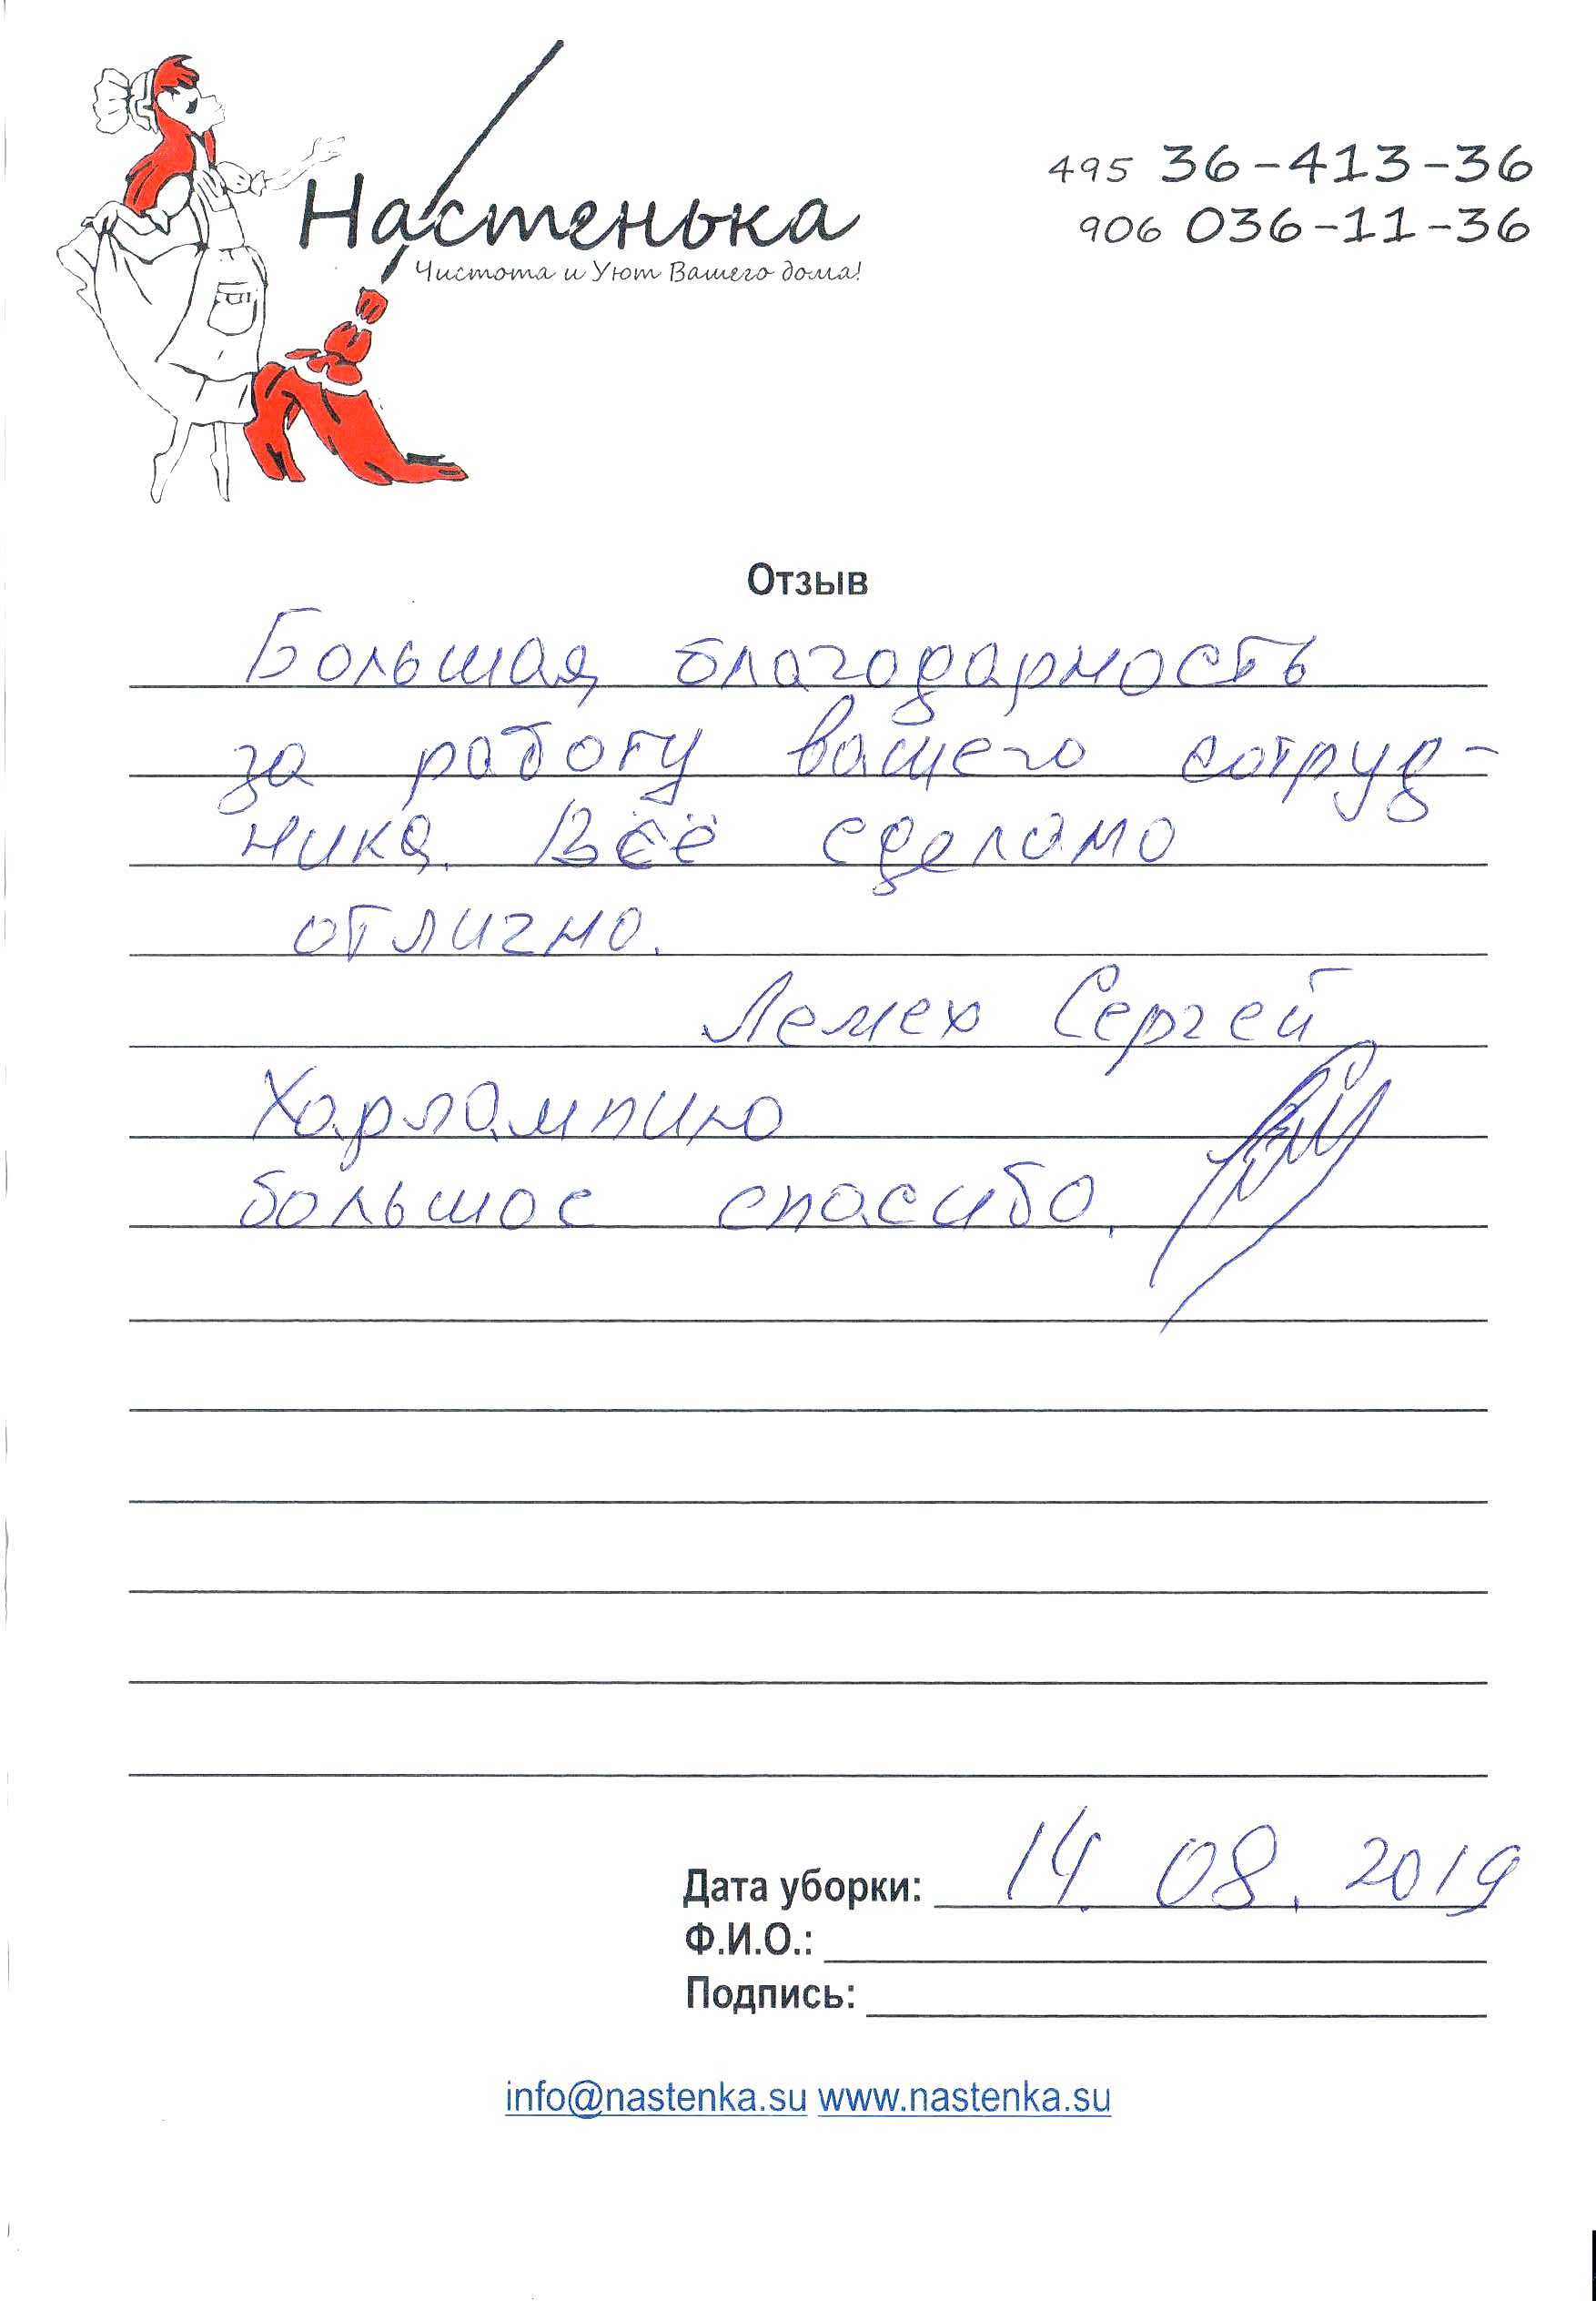 Настенька
Чистота и Уют Вашего дома!
495 36-413-36
906 036-11-36
Отзыв
Большая благодарность
за работу вашего сотруд-
ника. Всё сделано
отлично.
Лемех Сергей
Харлампию
большое спасибо.
Дата уборки: 14. 08. 2019
Ф.И.О.:
Подпись:
info@nastenka.su www.nastenka.su